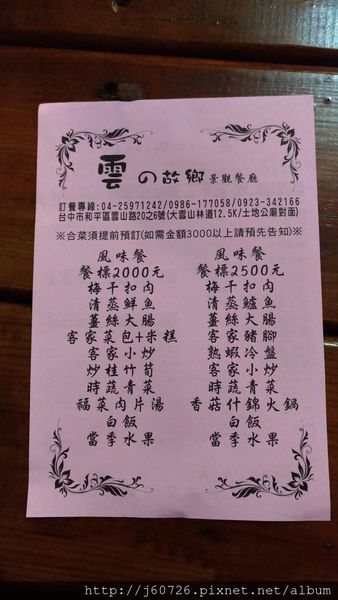 雲の故鄉景觀餐廳
訂餐專線:04-25971242/0986-177058/0923-342166
台中市和平區雪山路20之6號(大雪山林道12.5K/土地公廟對面)
※合菜須提前預訂(如需金額3000以上請預先告知)※
風味餐
餐標2000元
梅干扣肉
清蒸鮮魚
薑絲大腸
客家菜包+米糕
客家小炒
炒桂竹筍
時蔬青菜
福菜肉片湯
白飯
當季水果
風味餐
餐標2500元
梅干扣肉
清蒸鱸魚
薑絲大腸
客家豬腳
熟蝦冷盤
客家小炒
時蔬青菜
香菇什錦火鍋
白飯
當季水果
http://j60726.pixnet.net/album